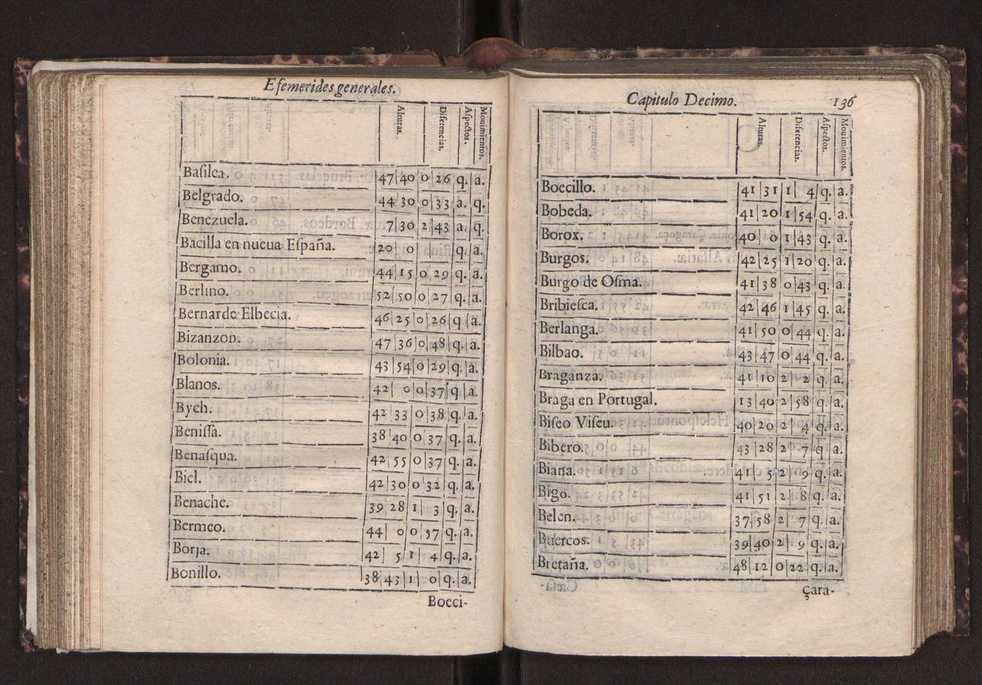 Efemerides generales.
Alturas. Diferencias. Aspectos. Mouimientos.
Basilea. 47 40 0 26 q. a.
Belgrado. 44 30 0 33 a. q.
Benezuela. 7 30 2 43 a. q.
Bacilla en nueua España. 20 0 q. a.
Bergamo. 44 15 0 29 q. a.
Berlino. 52 50 0 27 q. a.
Bernarde Elbecia. 46 25 0 26 q a.
Bizanzon. 47 36 0 48 q. a.
Bolonia. 43 54 0 29 q. a.
Blanos. 42 0 0 37 q a.
Bych. 42 33 0 38 q. a.
Benissa. 38 40 0 37 q. a.
Benasqua. 42 55 0 37 q. a.
Biel. 42 30 0 32 q. a.
Benache. 39 28 1 3 q. a.
Bermeo. 44 0 0 57 q. a.
Borja. 42 5 1 4 q. a.
Bonillo. 38 43 1 0 q. a.
Bocci-
Capitulo Decimo. 136
Alturas. Diferencias. Aspectos. Mouimientos.
Boecillo. 41 31 1 4 q. a.
Bobeda. 41 20 1 54 q. a.
Borox. 40 0 1 43 q. a.
Burgos. 42 25 1 20 q. a.
Burgo de Osma. 41 38 0 43 q. a.
Bribiesca. 42 46 1 45 q. a.
Berlanga. 41 50 0 44 q. a.
Bilbao. 43 47 0 44 q. a.
Braganza. 41 10 2 2 q. a.
Braga en Portugal. 13 40 2 58 q. a.
Biseo Viseu. 40 20 2 4 q. a.
Bibero. 43 28 2 7 q. a.
Biana. 41 5 2 9 q. a.
Bigo. 41 51 2 8 q. a.
Belen. 37 58 2 7 q. a.
Buercos. 39 40 2 9 q. a.
Bretaña. 48 12 0 22 q. a.
Çara-